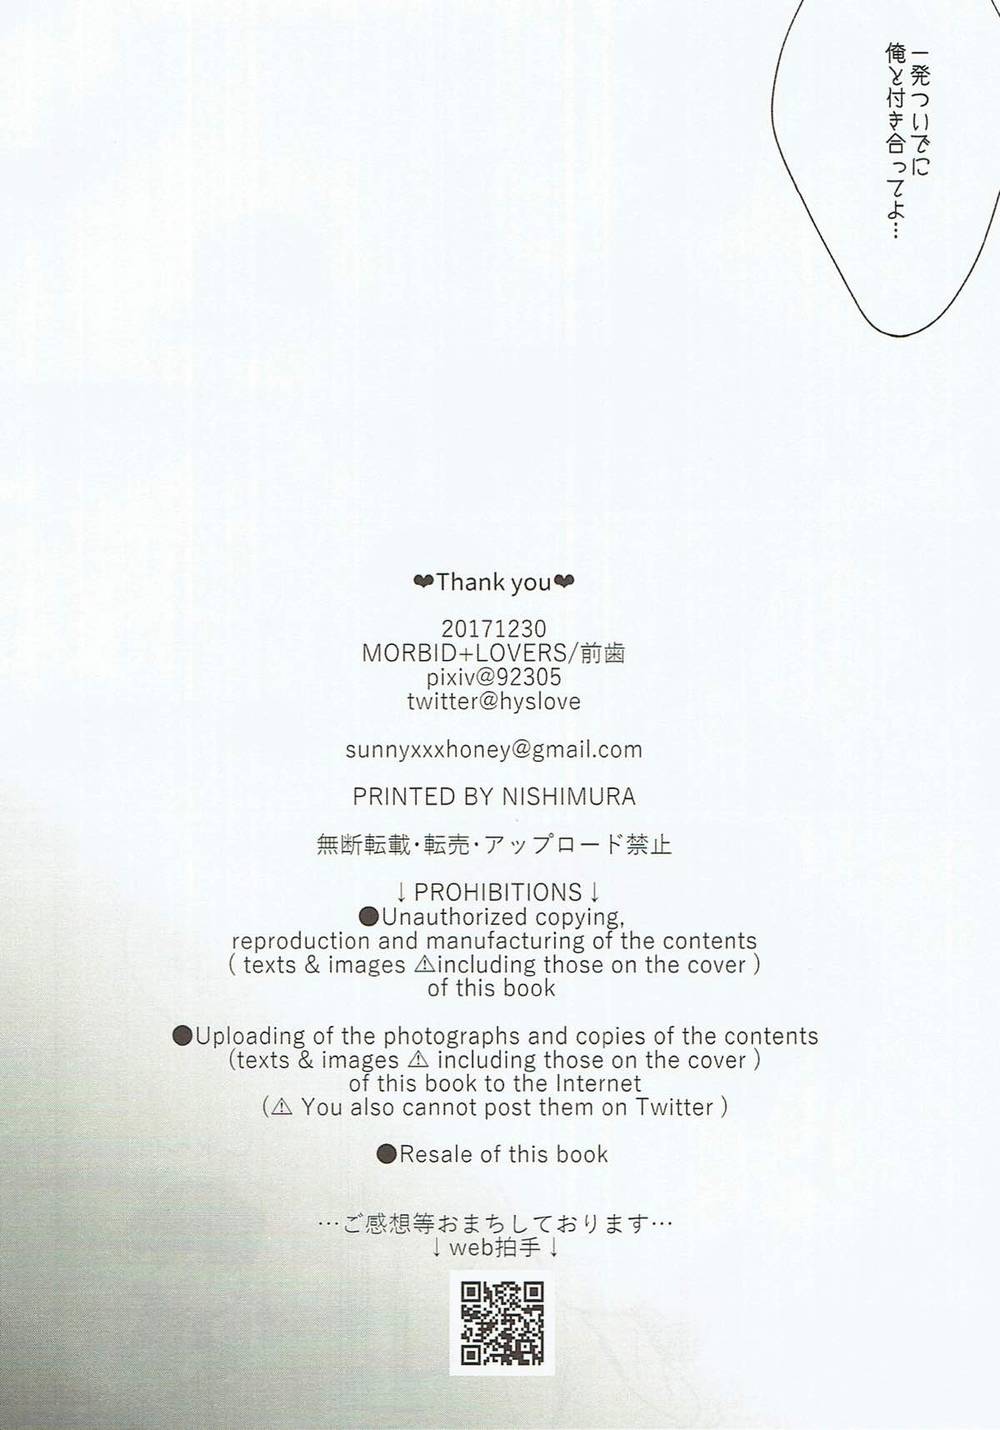 一発ついでに
俺と付き合ってよ…
❤Thank you❤
20171230
MORBID+LOVERS/前歯
pixiv@92305
twitter@hyslove
sunnyxxxhoney@gmail.com
PRINTED BY NISHIMURA
無断転載・転売・アップロード禁止
↓PROHIBITIONS↓
●Unauthorized copying,
reproduction and manufacturing of the contents
( texts & images ⚠including those on the cover )
of this book
●Uploading of the photographs and copies of the contents
(texts & images ⚠ including those on the cover )
of this book to the Internet
(⚠ You also cannot post them on Twitter )
●Resale of this book
…ご感想等おまちしております…
↓web拍手↓